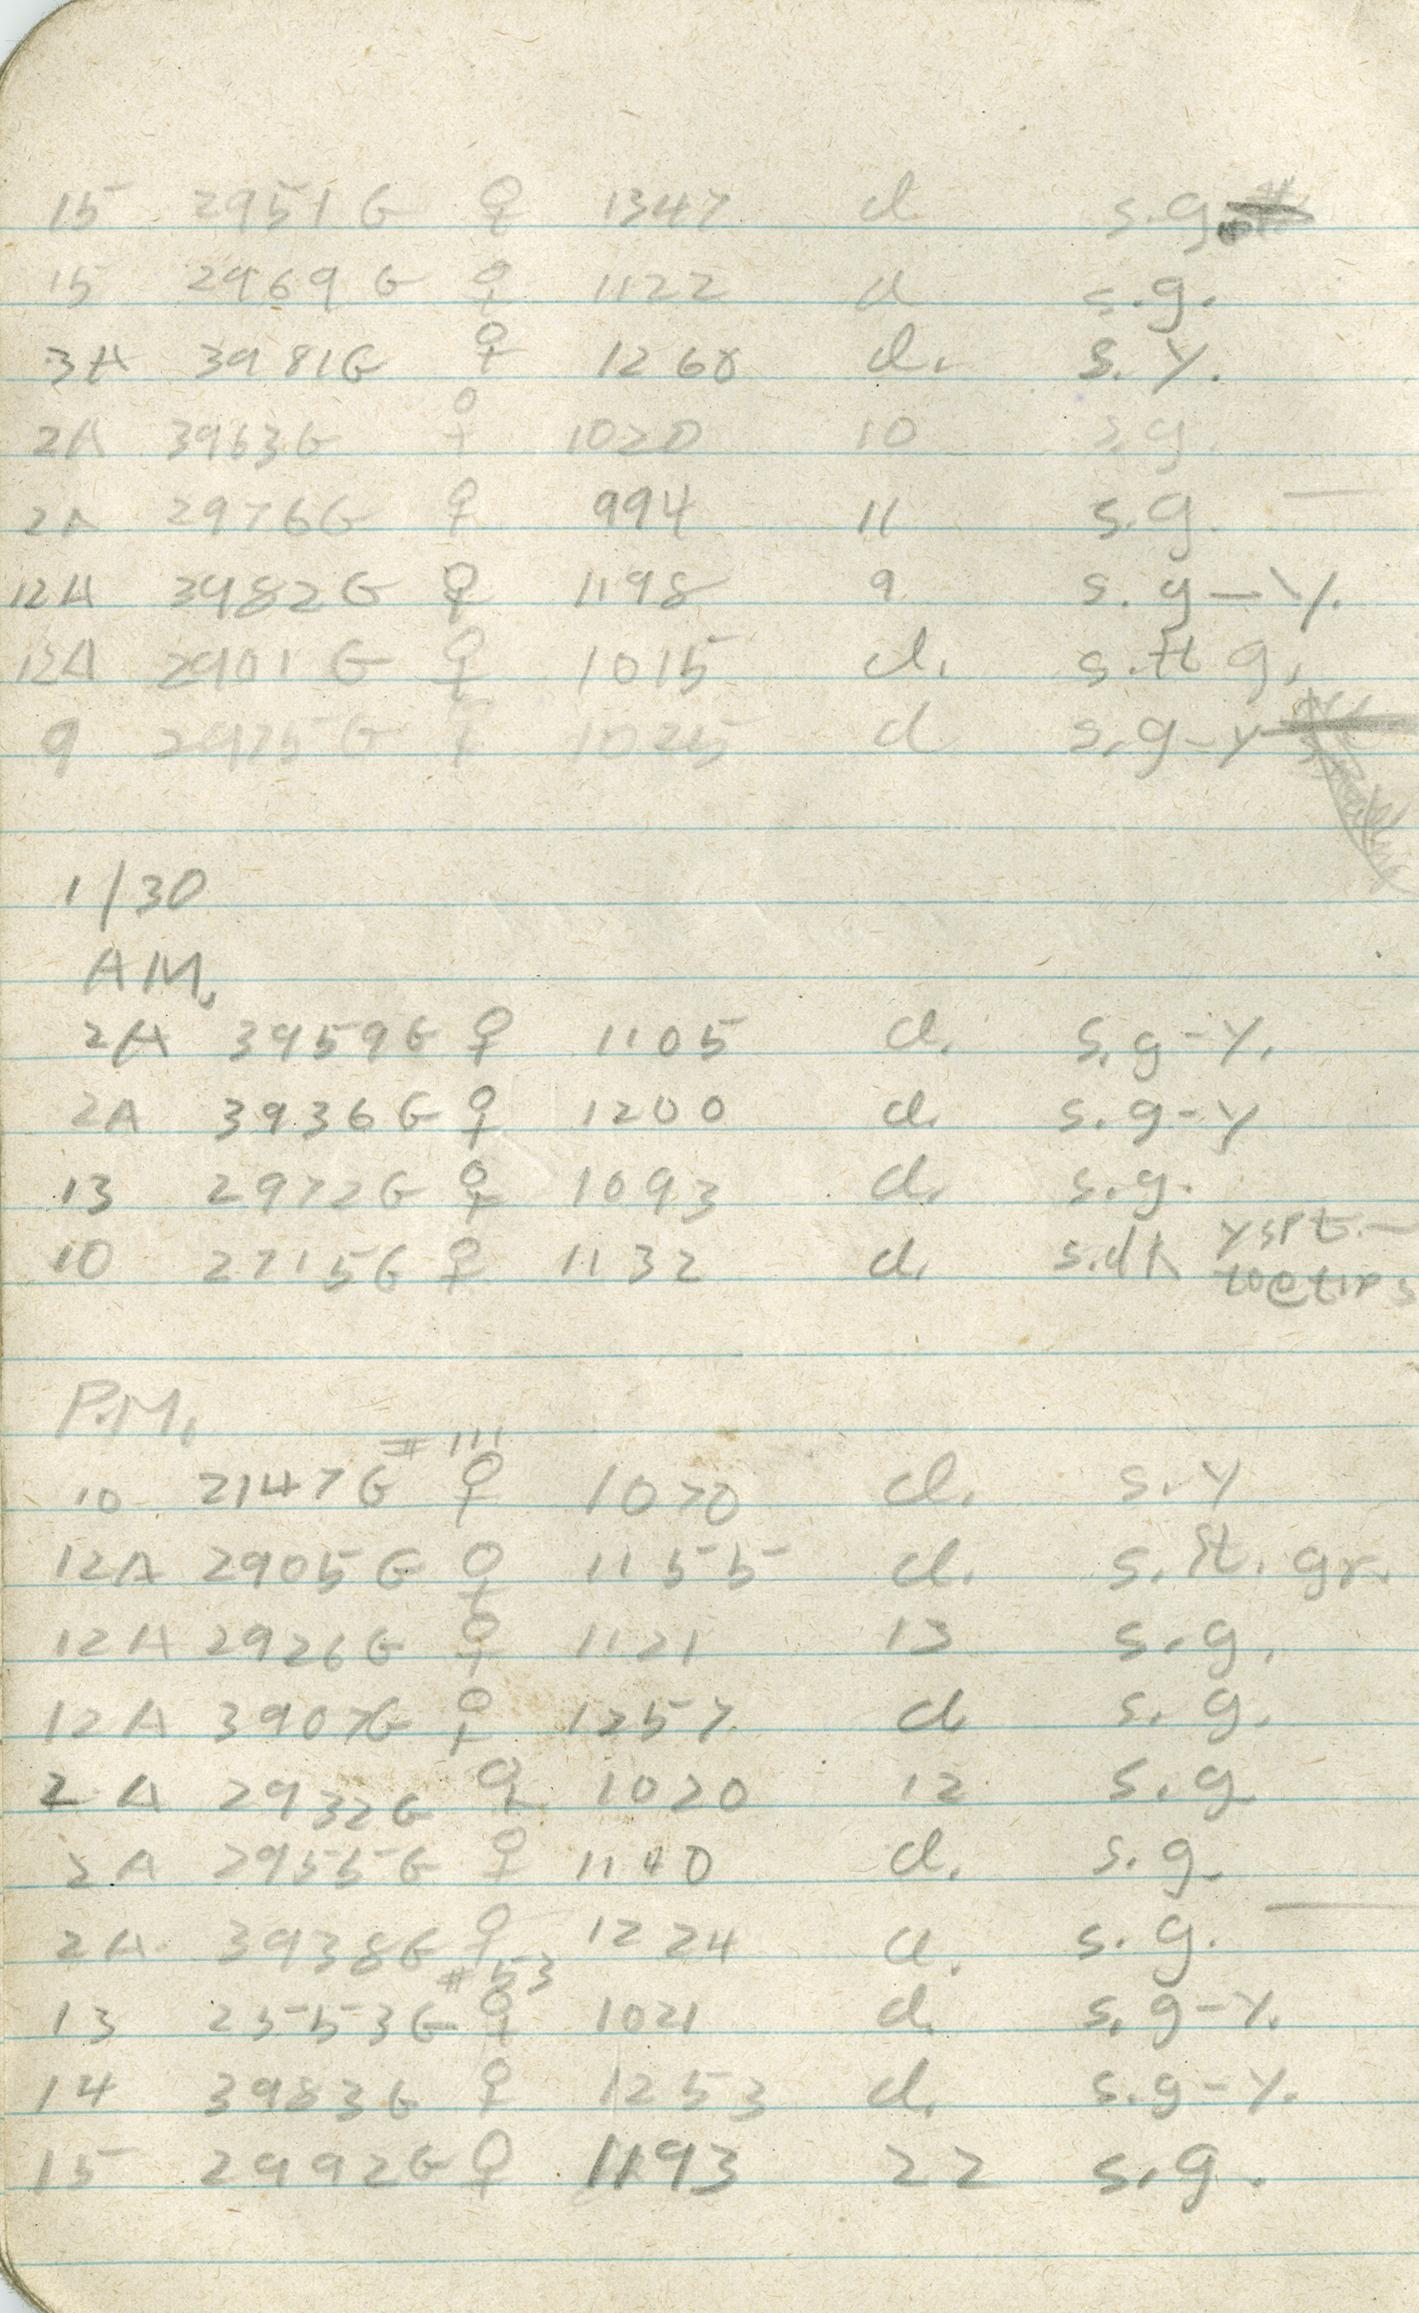 15 2951G ♀ 1347 d s.g.
15 2969G ♀ 1122 d s.g.
3A 3981G ♀ 1260 d. s.y.
2A 3963G ♀ 1020 10 s.g.
2A 2976G ♀ 994 11 s.g. —
12A 3982G ♀ 1198 9 s.g-y.
12A 2901G ♀ 1015 d. s.lt g.
9 2975G ♀ 1025 d s.g-y
1/30
AM.
2A 3959G ♀ 1105 d. s.g-y.
2A 3936G ♀ 1200 d. s.g-y
13 2972G ♀ 1093 d. s.g.
10 2715G ♀ 1132 d. s.dk yspt.-
toetips
P.M.
#111
10 2147G ♀ 1070 d. s.y
12A 2905G ♀ 1155 d. s.lt. gr.
12A 2926G ♀ 1121 13 s.g.
12A 3907G ♀ 1257 d s.g.
2A 2932G ♀ 1020 12 s.g
2A 2955G ♀ 1140 d. s.g.
2A 3938G ♀ 1224 d. s.g.
#53
13 2553G ♀ 1021 d. s.g-y.
14 3983G ♀ 1253 d. s.g-y.
15 2992G ♀ 1193 22 s.g.